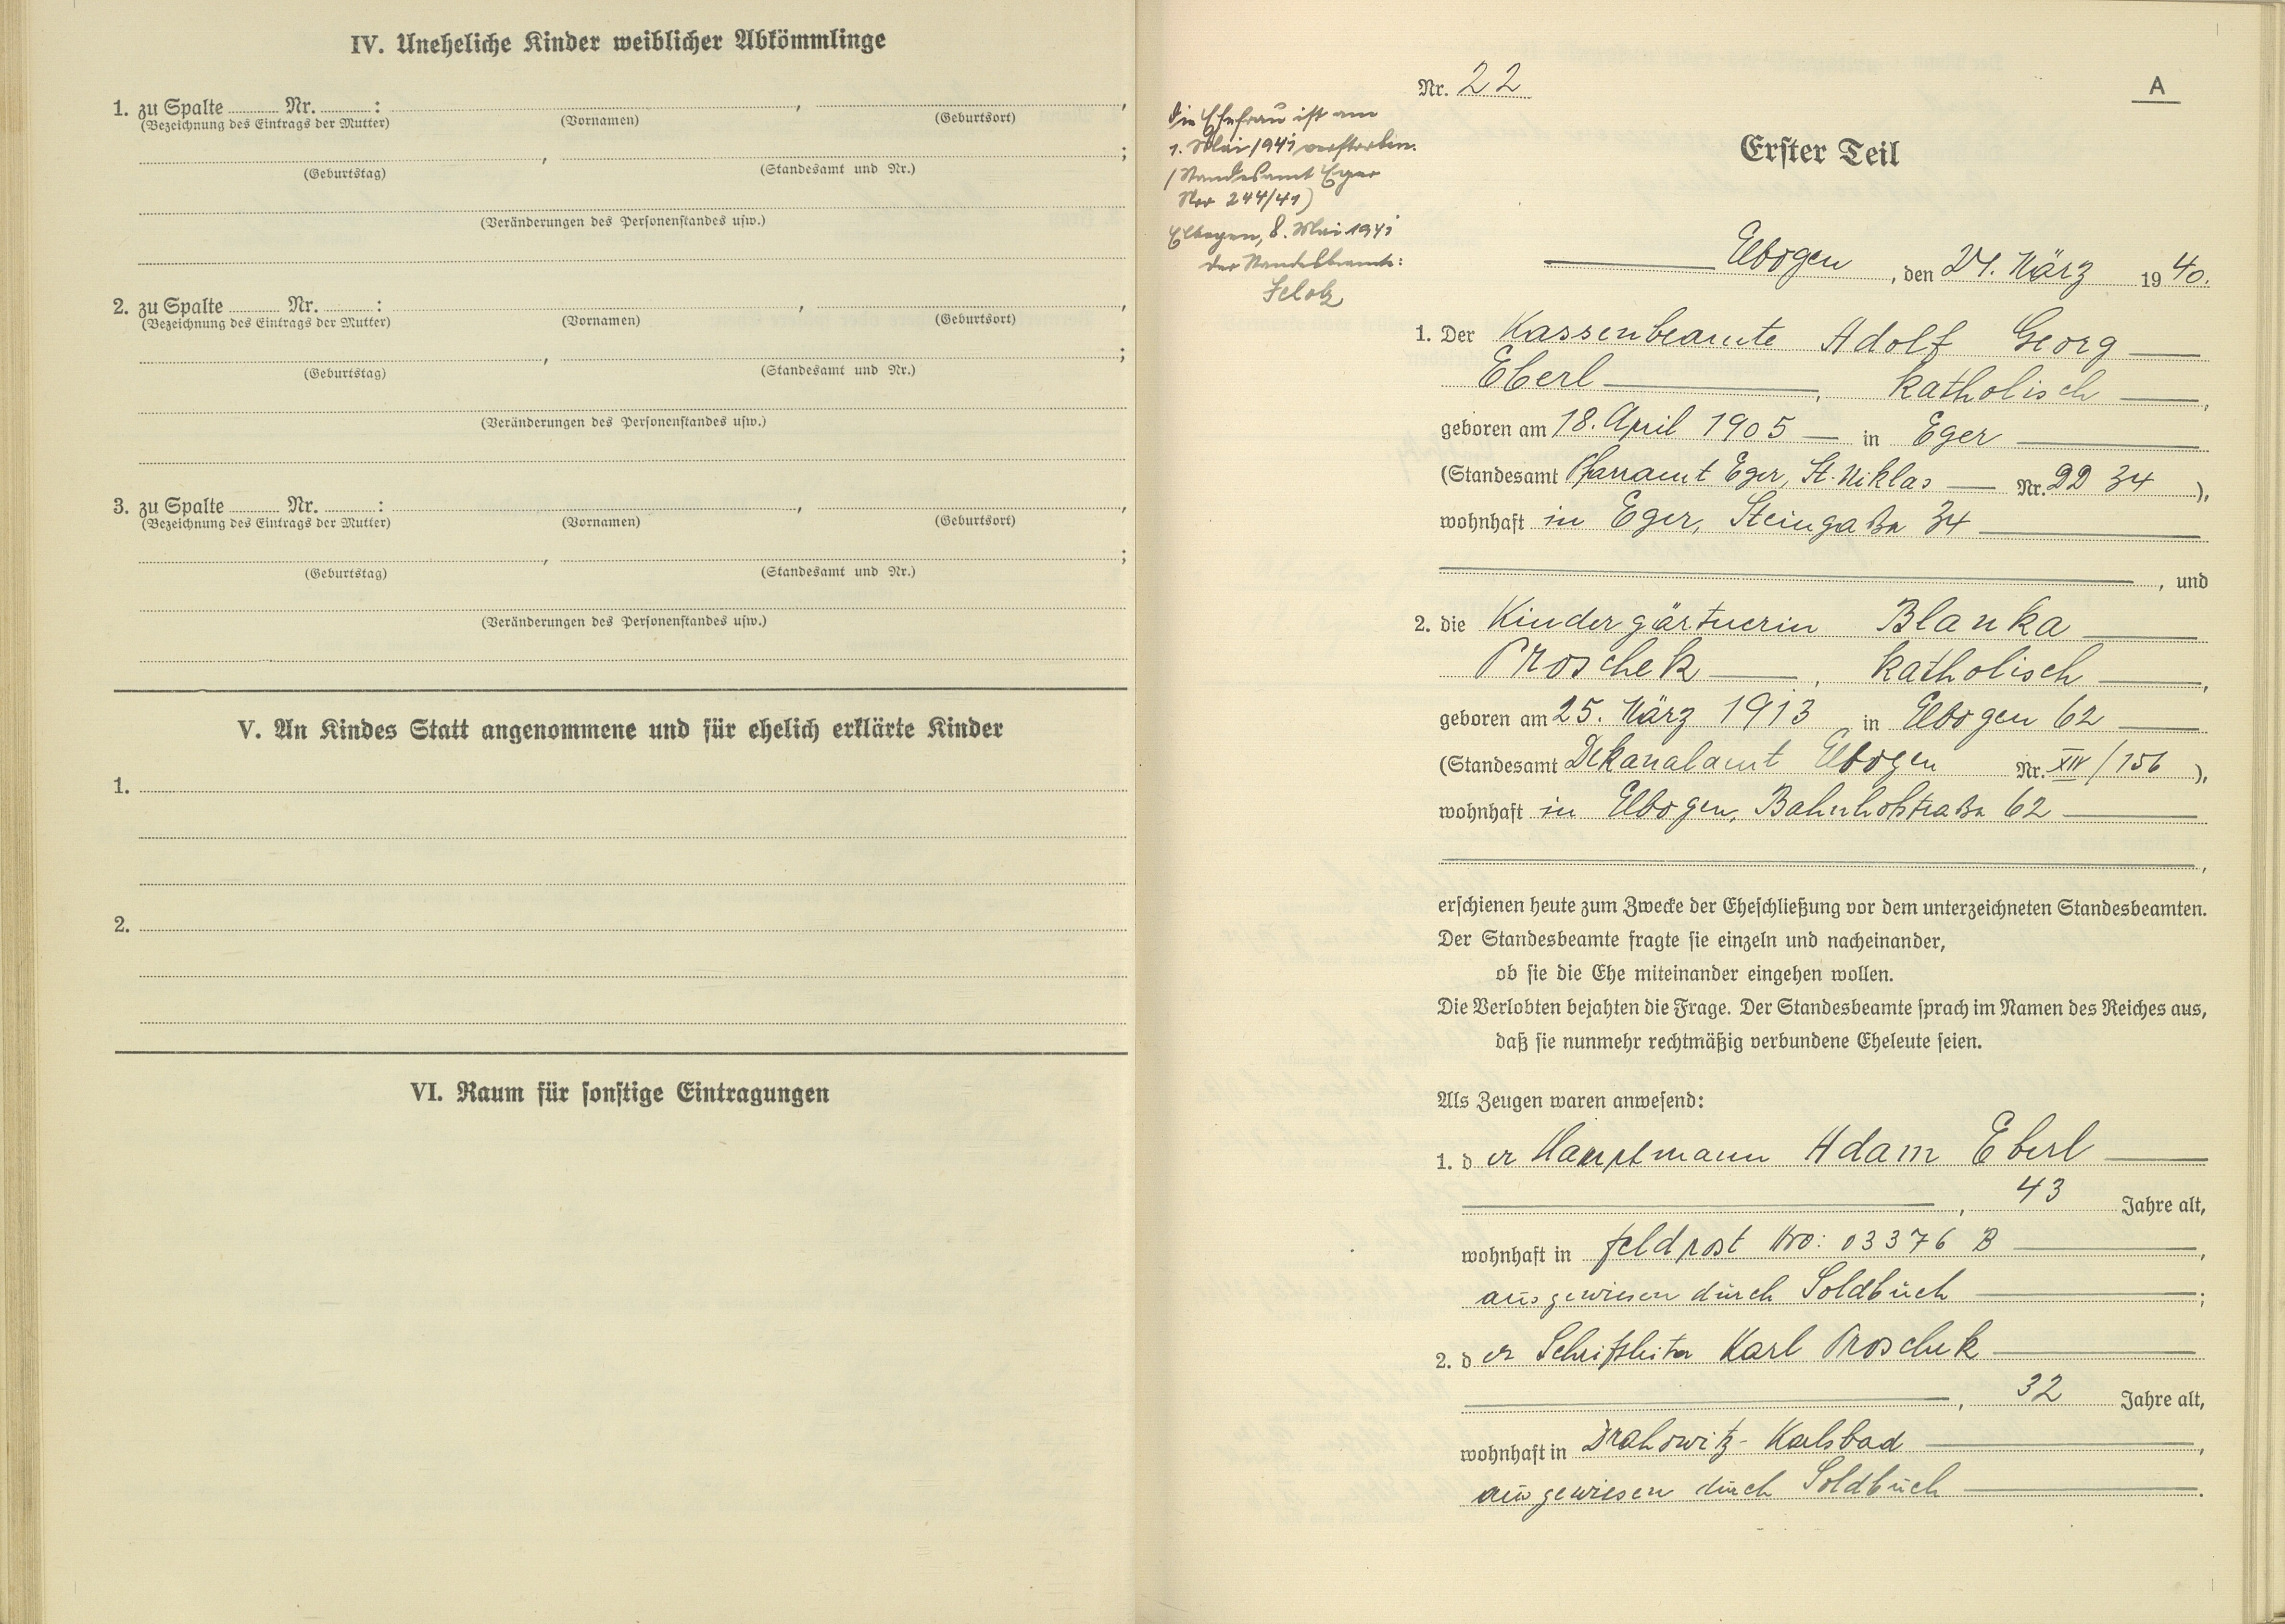 IV. Uneheliche Kinder weiblicher Abkömmlinge
1. zu Spalte ........ Nr. ........ : , ,
(Bezeichnung des Eintrags der Mutter) (Vornamen) (Geburtsort)
, ;
(Geburtstag) (Standesamt und Nr.)
(Veränderungen des Personenstandes usw.)
2. zu Spalte ........ Nr. ........ : , ,
(Bezeichnung des Eintrags der Mutter) (Vornamen) (Geburtsort)
, ;
(Geburtstag) (Standesamt und Nr.)
(Veränderungen des Personenstandes usw.)
3. zu Spalte ........ Nr. ........ : , ,
(Bezeichnung des Eintrags der Mutter) (Vornamen) (Geburtsort)
, ;
(Geburtstag) (Standesamt und Nr.)
(Veränderungen des Personenstandes usw.)
V. An Kindes Statt angenommene und für ehelich erklärte Kinder
1.
2.
VI. Raum für sonstige Eintragungen
Nr. 22
A
die Ehefrau ist am
1. Mai 1941 verstorben.
(Standesamt Eger
Nro 244/41)
Elbogen, 8. Mai 1941
der Standesbeamte:
Erster Teil
Elbogen, den 24. März 1940.
1. Der Kassenbeamte Adolf Georg
Eberl, katholisch,
geboren am 18. April 1905 in Eger
(Standesamt Pfarramt Eger, St. Niklas Nr. DD 34),
wohnhaft in Eger, Steingaße 34
, und
2. die Kindergärtnerin Blanka
Proschek, katholisch,
geboren am 25. März 1913 in Elbogen 62
(Standesamt Dekanalamt Elbogen Nr. XIV/156),
wohnhaft in Elbogen, Bahnhofstraße 62
,
erschienen heute zum Zwecke der Eheschließung vor dem unterzeichneten Standesbeamten.
Der Standesbeamte fragte sie einzeln und nacheinander,
ob sie die Ehe miteinander eingehen wollen.
Die Verlobten bejahten die Frage. Der Standesbeamte sprach im Namen des Reiches aus,
daß sie nunmehr rechtmäßig verbundene Eheleute seien.
Als Zeugen waren anwesend:
1. der Hauptmann Adam Eberl
, 43 Jahre alt,
wohnhaft in Feldpost Nro: 03376 B,
ausgewiesen durch Soldbuch;
2. der Schriftleiter Karl Proschek
, 32 Jahre alt,
wohnhaft in Drahowitz-Karlsbad,
ausgewiesen durch Soldbuch.